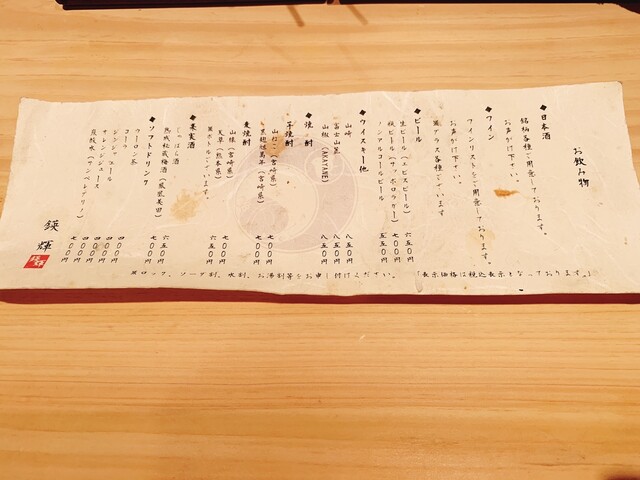 お飲み物
◆日本酒
銘柄各種ご用意しております。
お声かけ下さい。
◆ワイン
ワインリストをご用意しております。
お声かけ下さい。
※グラス各種ございます
◆ビール
生ビール(ヱビスビール) 六五〇円
瓶ビール(サッポロラガー) 七〇〇円
ノンアルコールビール 五五〇円
◆ウイスキー他
山崎 八五〇円
富士山麓 八五〇円
山椒(AKAYANE) 八五〇円
◆焼酎
芋焼酎
山ねこ(宮崎県) 七〇〇円
黒麹萬年(宮崎県) 七〇〇円
麦焼酎
山猿(宮崎県) 七〇〇円
天草(熊本県) 六五〇円
※ボトルございます。
◆果実酒
しゃばら酒 六五〇円
熟成紅茶梅酒(鳳凰美田) 七〇〇円
◆ソフトドリンク
ウーロン茶 四〇〇円
コーラ 四〇〇円
ジンジャエール 四〇〇円
オレンジジュース 四〇〇円
炭酸水(サンペレグリノ) 七〇〇円
※ロック、ソーダ割、水割、お湯割等をお申し付けください。
「表示価格は税込表示となっております。」
鍈輝